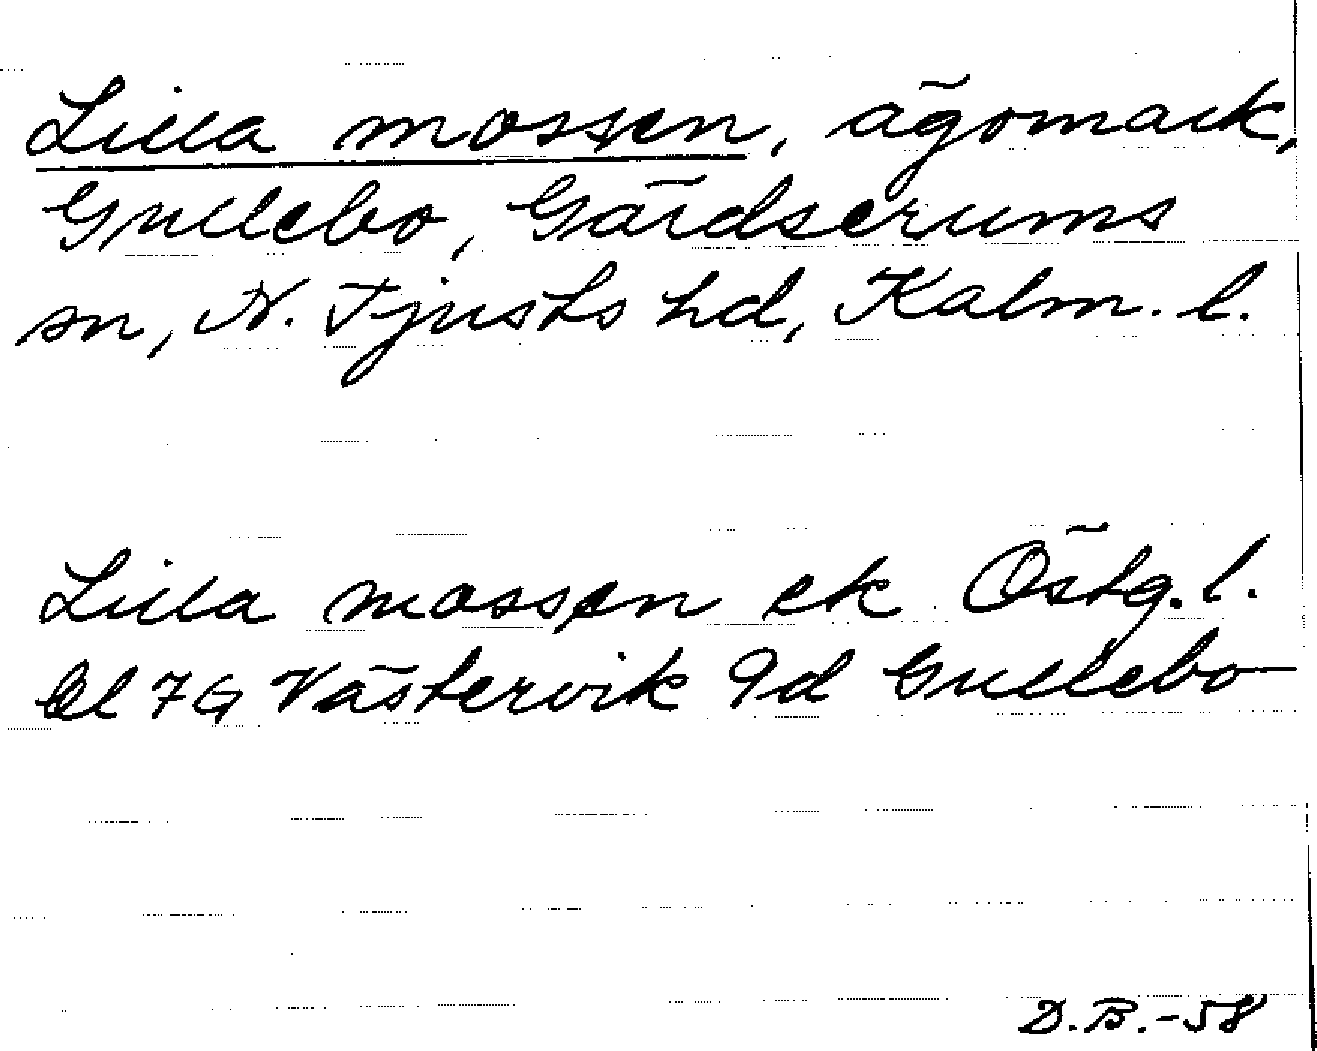 Lilla mossen, ägomark,
Gullebo, Gärdserums
sn, N. Tjusts hd, Kalm. l.
Lilla mossen ek Östg. l.
bl 7G Västervik 9d Gullebo
D.B.-58